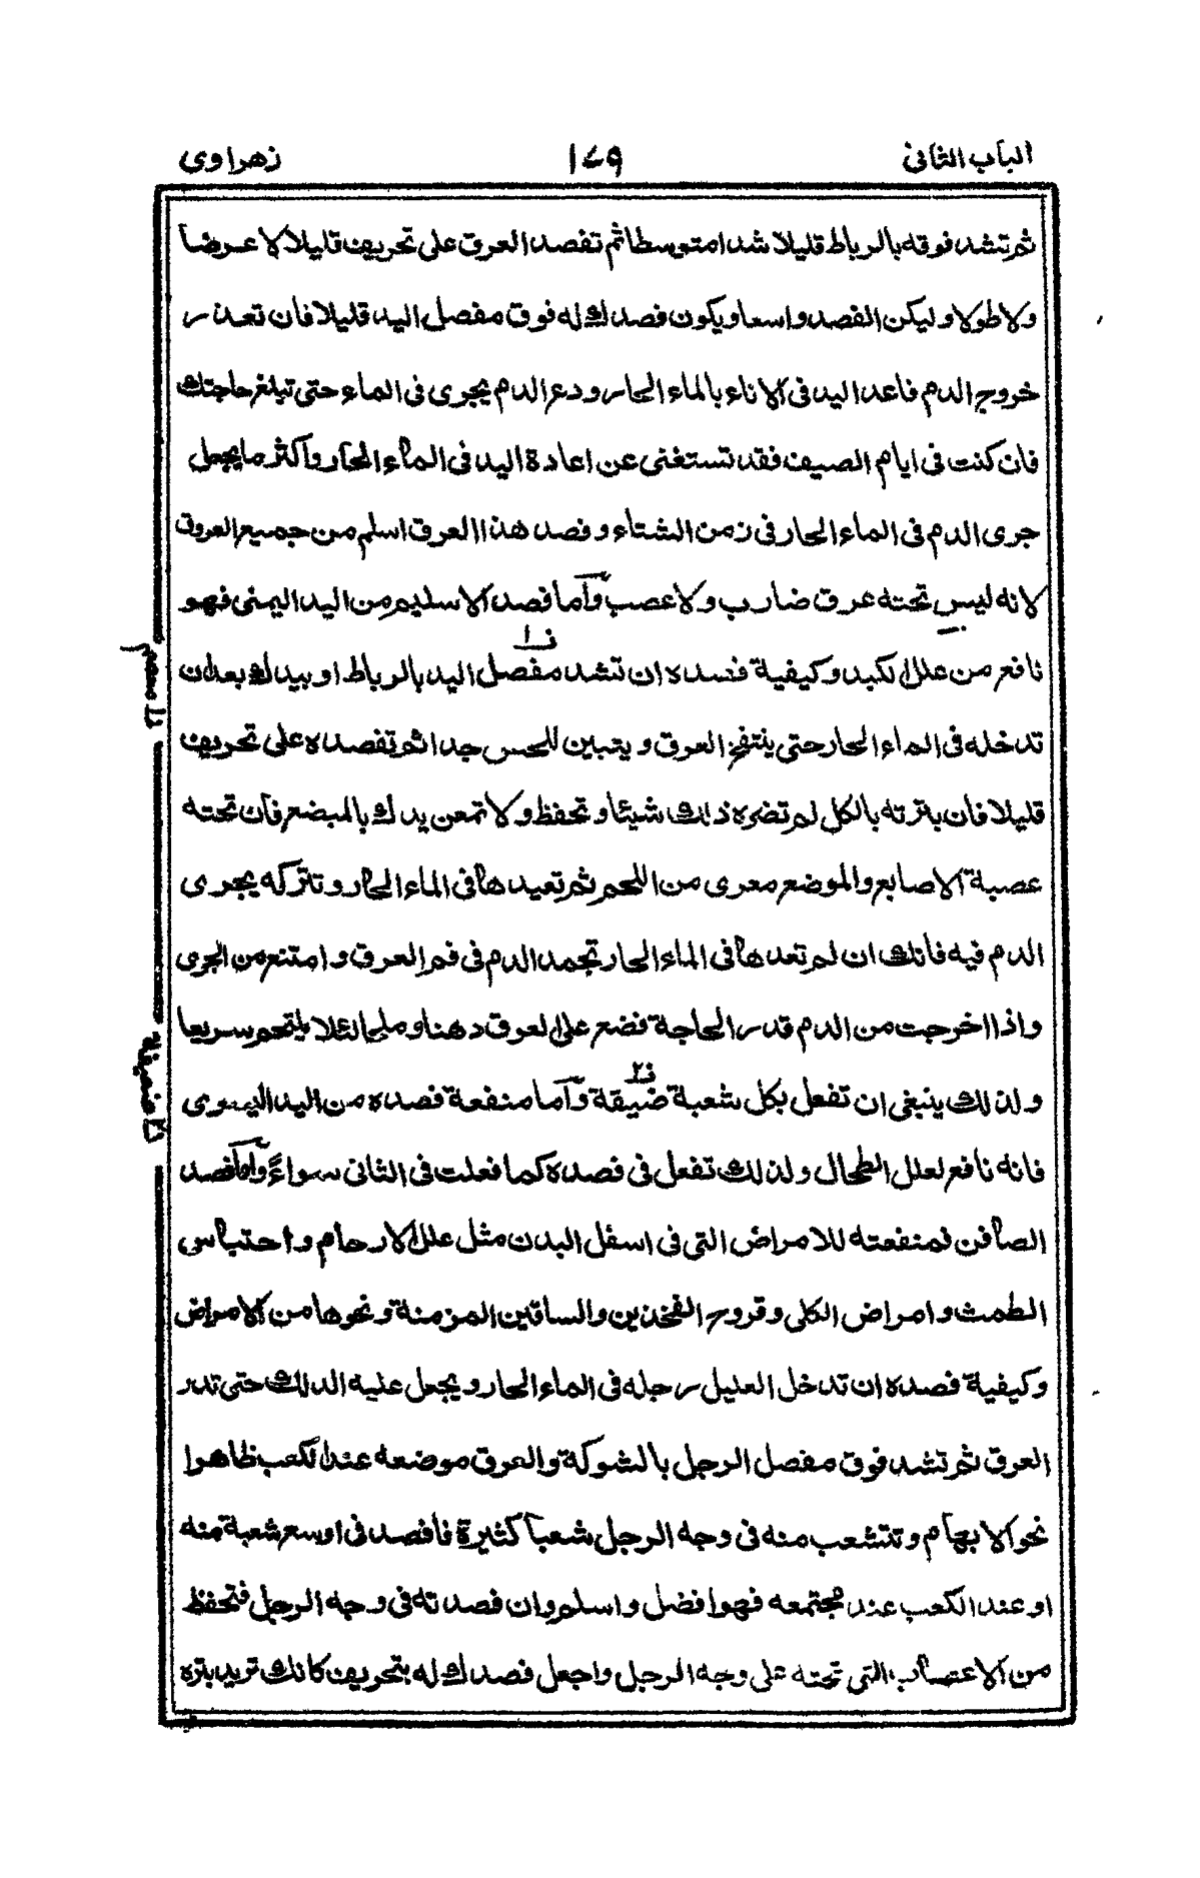 الباب الثانى ١٤٩ زهراوى
ثم تشد فوقه بالرباط قليلا شدا متوسطا ثم تفصد العرق على تحريف قليلا لا عرضا
ولا طولا وليكن الفصد واسعا ويكون فصدك له فوق مفصل اليد قليلا فان تعذر
خروج الدم فاعد اليد فى الاناء بالماء الحار ودع الدم يجرى فى الماء حتى تبلغ حاجتك
فان كنت فى ايام الصيف فقد تستغنى عن اعادة اليد فى الماء الحار وأكثر ما يجعل
جرى الدم فى الماء الحار فى زمن الشتاء وفصد هذا العرق اسلم من جميع العروق
لانه ليس تحته عرق ضارب ولا عصب وأما فصد الاسليم من اليد اليمنى فهو
نافع من علل الكبد وكيفية فصده ان تشد مفصل اليد بالرباط او بيدك بعد ان
تدخله فى الماء الحار حتى ينتفخ العرق ويتبين للحس جدا ثم تفصده على تحريف
قليلا فان بترته بالكل لم تضره ذلك شيئا وتحفظ ولا تمعن يدك بالمبضع فان تحته
عصبة الاصابع والموضع معرى من اللحم ثم تعيدها فى الماء الحار وتتركه يجرى
الدم فيه فانك ان لم تعدها فى الماء الحار تجمد الدم فى فم العرق وامتنع من الجرى
واذا اخرجت من الدم قدر الحاجة فضع على العرق دهنا وملحا لئلا يلتحم سريعا
ولذلك ينبغى ان تفعل بكل شعبة ضيقة وأما منفعة فصده من اليد اليسرى
فانه نافع لعلل الطحال ولذلك تفعل فى فصده كما فعلت فى الثانى سواءً وأما فصد
الصافن فمنفعته للامراض التى فى اسفل البدن مثل علل الارحام واحتباس
الطمث وامراض الكلى وقروح الفخذين والساقين المزمنة ونحوها من الامراض
وكيفية فصده ان تدخل العليل رجله فى الماء الحار ويجعل عليه الدلك حتى تدر
العرق ثم تشد فوق مفصل الرجل بالشوكة والعرق موضعه عند الكعب ظاهرا
نحو الابهام وتتشعب منه فى وجه الرجل شعبا كثيرة فافصد فى اوسع شعبة منه
او عند الكعب عند مجتمعه فهو افضل واسلم وان فصدته فى وجه الرجل فتحفظ
من الاعصاب التى تحته على وجه الرجل واجعل فصدك له بتحريف كانك تريد بتره